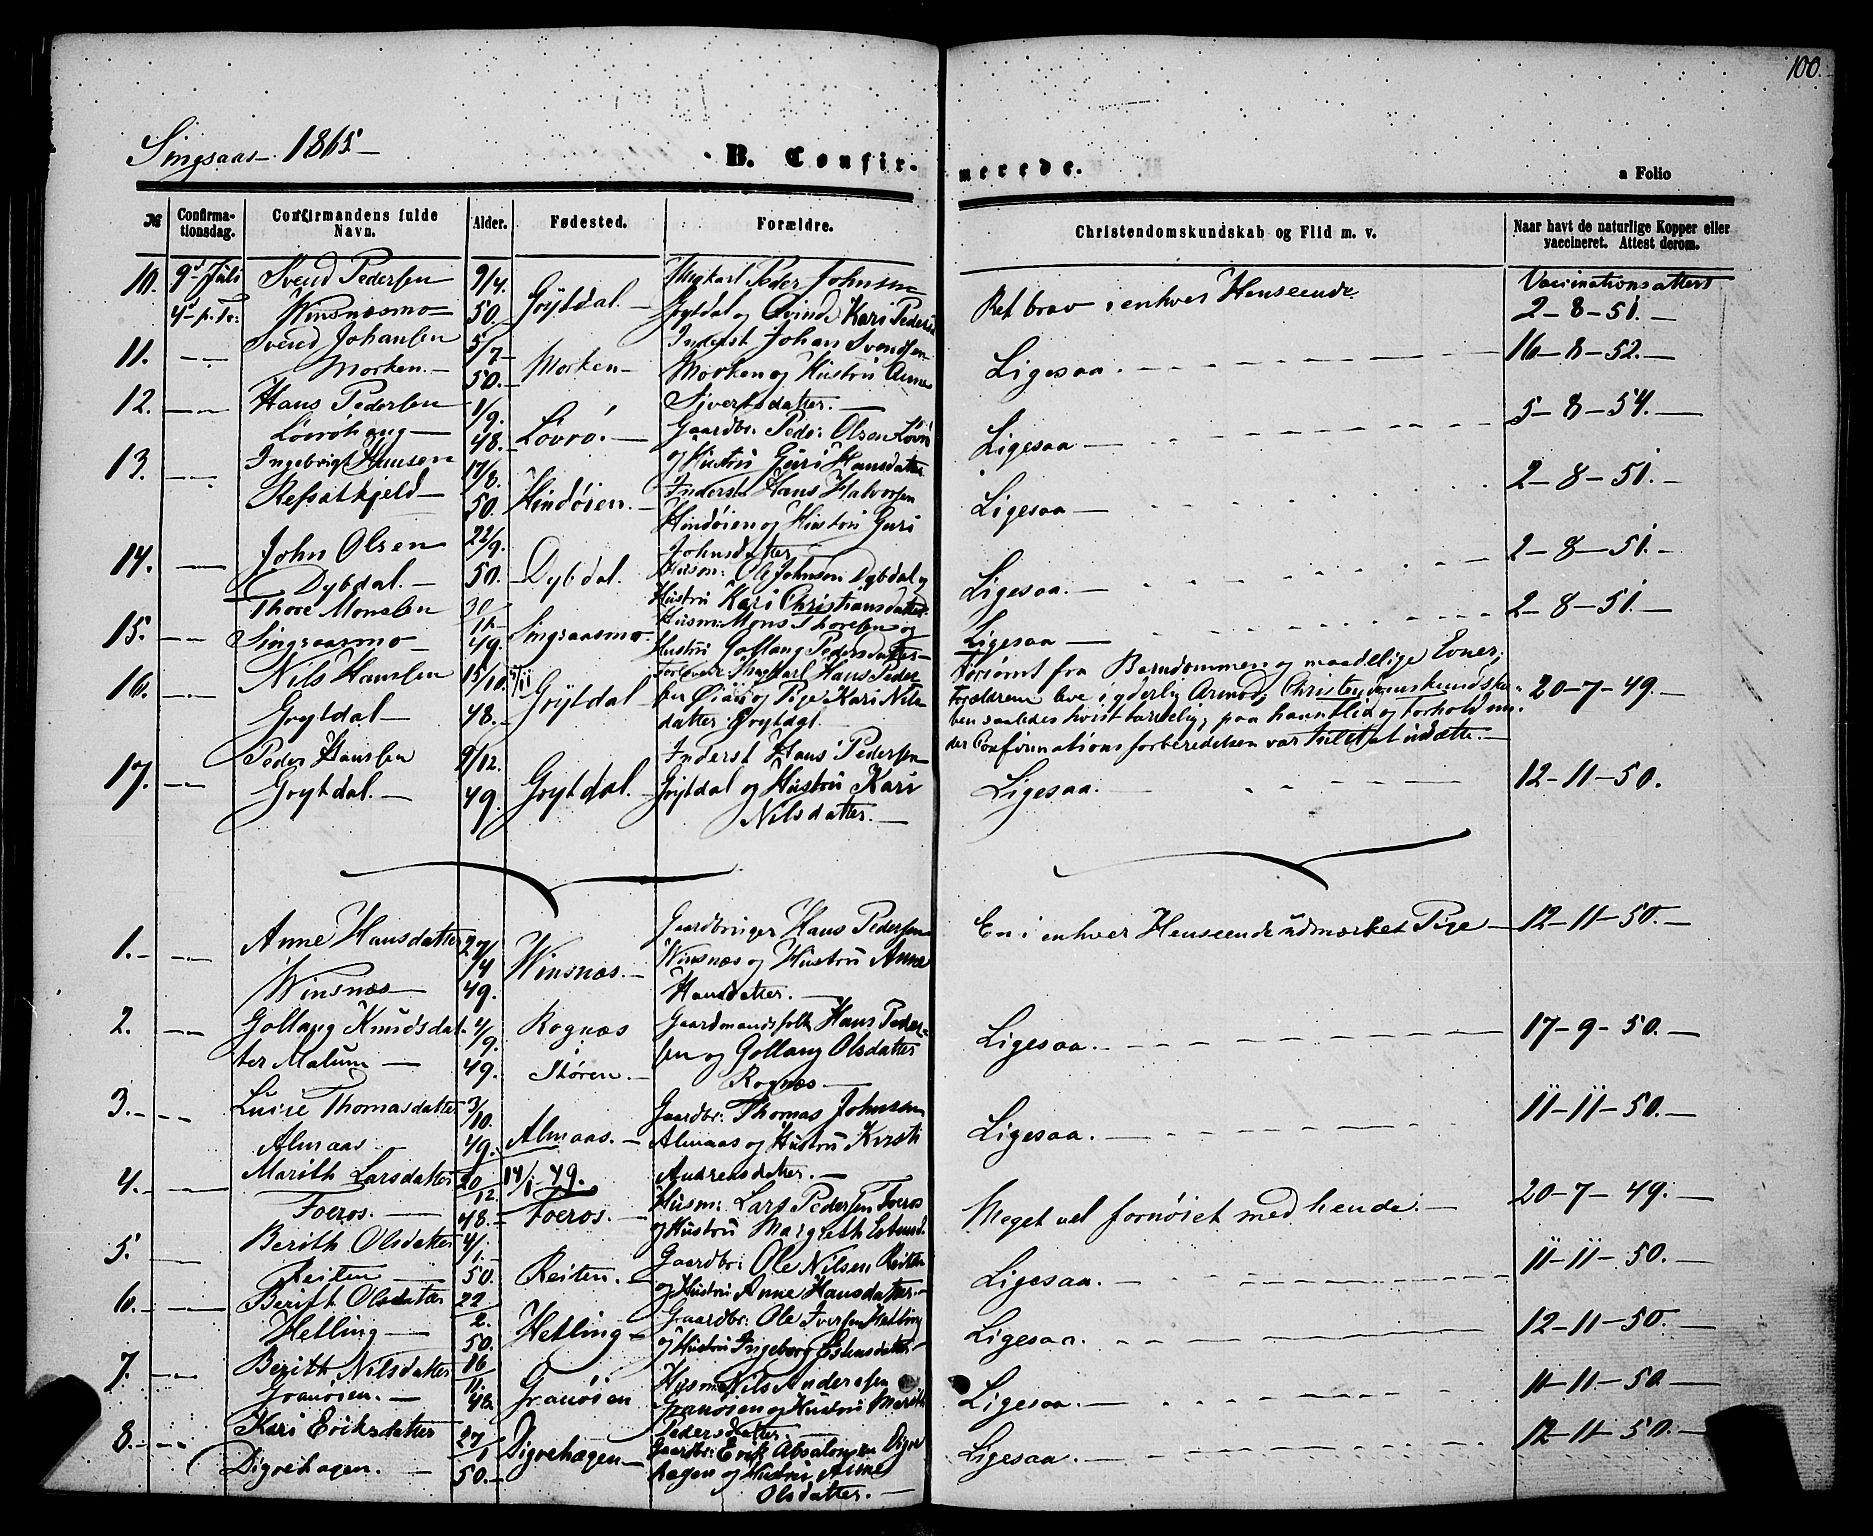 100.
Singsaas 1865.
B. Confir-
merede.
a Folio
№
Confirma-
tionsdag.
Confirmandens fulde
Navn.
Alder.
Fødested.
Forældre.
Christendomskundskab og Flid m. v.
Naar havt de naturlige Kopper eller
vaccineret. Attest derom.
10. 9d Juli
4 p. Tr:
Svend Pedersen
Winsnæsmo
9/4.
50.
Grytdal
Ungkarl Peder Johnsen
Grytdal og Qvinde Kari Peders
Ret brav i enhver Henseende.
Vaccinationsattest
2-8-51.
11.
Svend Johansen
Morken.
5/7
50.
Morken
Inderst Johan Svendsen
Morken og Hustru Anne
Sivertsdatter.
Ligesaa.
16-8-52.
12.
Hans Pedersen
Løvröhaug
1/9.
48.
Løvrö.
Gaardbr: Peder Olsen Løvrö
og Hustru Guri Hansdatter
Ligesaa
5-8-54.
13.
Ingebrigt Hansen
Refsetkjeld
17/8.
50.
Hindöien.
Inderst Hans Halvorsen
Hindöien og Hustru Guri
Johnsdatter
Ligesaa
2-8-51.
14.
John Olsen
Dybdal.
22/9.
50.
Dybdal.
Husm: Ole Johnsen Dybdal og
Hustru Kari Christiansdatter.
Ligesaa.
2-8-51.
15.
Thore Monsen
Singsaasmo
49.
Singsaasmo.
Husm: Mons Thoresen og
Hustru Gollaug Pedersdatter
Ligesaa
2-8-51.
16.
Nils Hansen
Grytdal
15/10.
48.
Grytdal
Ungkarl Hans Peder
sen Øiaas og Pige Kari Nils
datter Grytdal.
Forsömt fra Barndommen og maadelige Evner;
Forældrene leve i yderlig Armod; Christendomskundska-
ben saaledes höist tarvelig; paa hans Flid og Forhold un-
der Confirmationsforberedelsen var Intet at udsætte.
20-7-49.
17.
Peder Hansen
Grytdal.
9/12.
49.
Grytdal.
Inderst Hans Pedersen
Grytdal og Hustru Kari
Nilsdatter.
Ligesaa.
12-11-50.
1.
Anne Hansdatter
Winsnæs
27/4
49.
Winsnæs.
Gaardbruger Hans Pedersen
Winsnæs og Hustru Anne
Hansdatter.
En i enhver Henseende udmærket Pige
12-11-50.
2.
Gollaug Knudsdat-
ter Malum
4/9.
49.
Rognæs
Støren.
Gaardmandsfolk Hans Peder-
sen og Gollaug Olsdatter
Rognæs
Ligesaa.
17-9-50.
3.
Luise Thomasdatter
Almaas
3/10.
49.
Almaas.
Gaardbr: Thomas Johnsen
Almaas og Hustru Kirsti
Andreasdatter.
Ligesaa.
11-11-50.
4.
Marith Larsdatter
Foeros.
20/12
48.
14/1 49.
Foeros.
Husm: Lars Pedersen Foeros
og Hustru Margreth
Meget vel fornöiet med hende.
20-7-49.
5.
Berith Olsdatter
Reiten
4/1.
50.
Reiten.
Gaardbr: Ole Nilsen Reiten
og Hustru Anne Hansdatter.
Ligesaa.
11-11-50.
6.
Berith Olsdatter
Hetling
22/2.
50.
Hetling
Gaardbr: Ole Iversen Hetling
og Hustru Ingeborg Estensdatter
Ligesaa.
12-11-50.
7.
Berith Nilsdatter
Granöien.
16/11.
48.
Granöien
Husm: Nils Andersen
Granöien og Hustru Marith
Pedersdatter.
Ligesaa.
11-11-50
8.
Kari Eriksdatter
Digrehagen.
27/1
50.
Digrehagen
Gaardbr: Erik Absalonsen Digre
hagen og Hustru Anne
Olsdatter.
Ligesaa.
12-11-50.